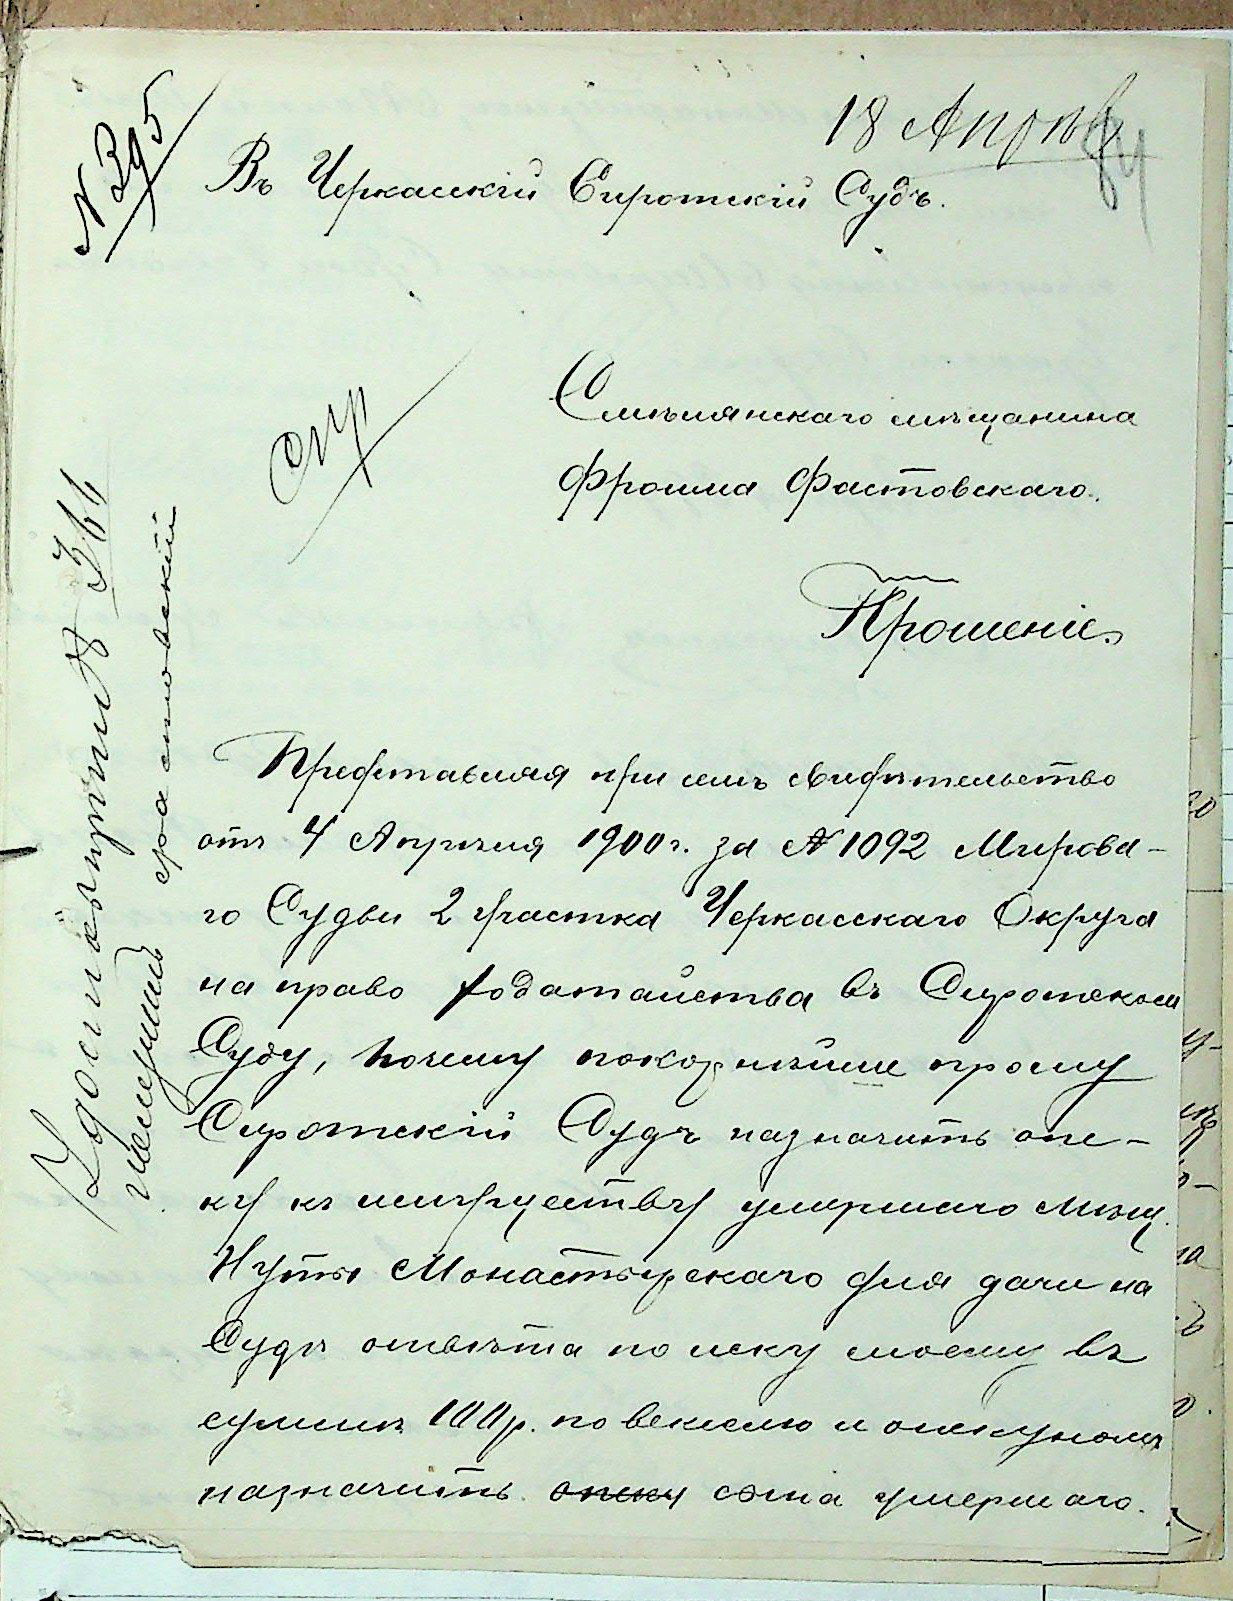 N 395
18 Апрѣля
84
Въ Черкасскій Сиротскій Судъ.
Смѣлянскаго мѣщанина
Фроима Фастовскаго.
Прошеніе.
Представляя при семъ свидѣтельство
отъ 4 Апрѣля 1900 г. за № 1092 Мирова-
го Судьи 2 участка Черкасскаго Округа
на право ходатайства въ Сиротскомъ
Суду, почему покорнѣйше прошу
Сиротскій Судъ назначить опе-
ку къ имуществу умершаго мѣщ.
Нуты Монастырскаго для дачи на
Судѣ отвѣта по иску моему въ
суммѣ 100 р. по векселю и опекуномъ
назначить опеку сына умершаго.
получилъ
Фастовскій